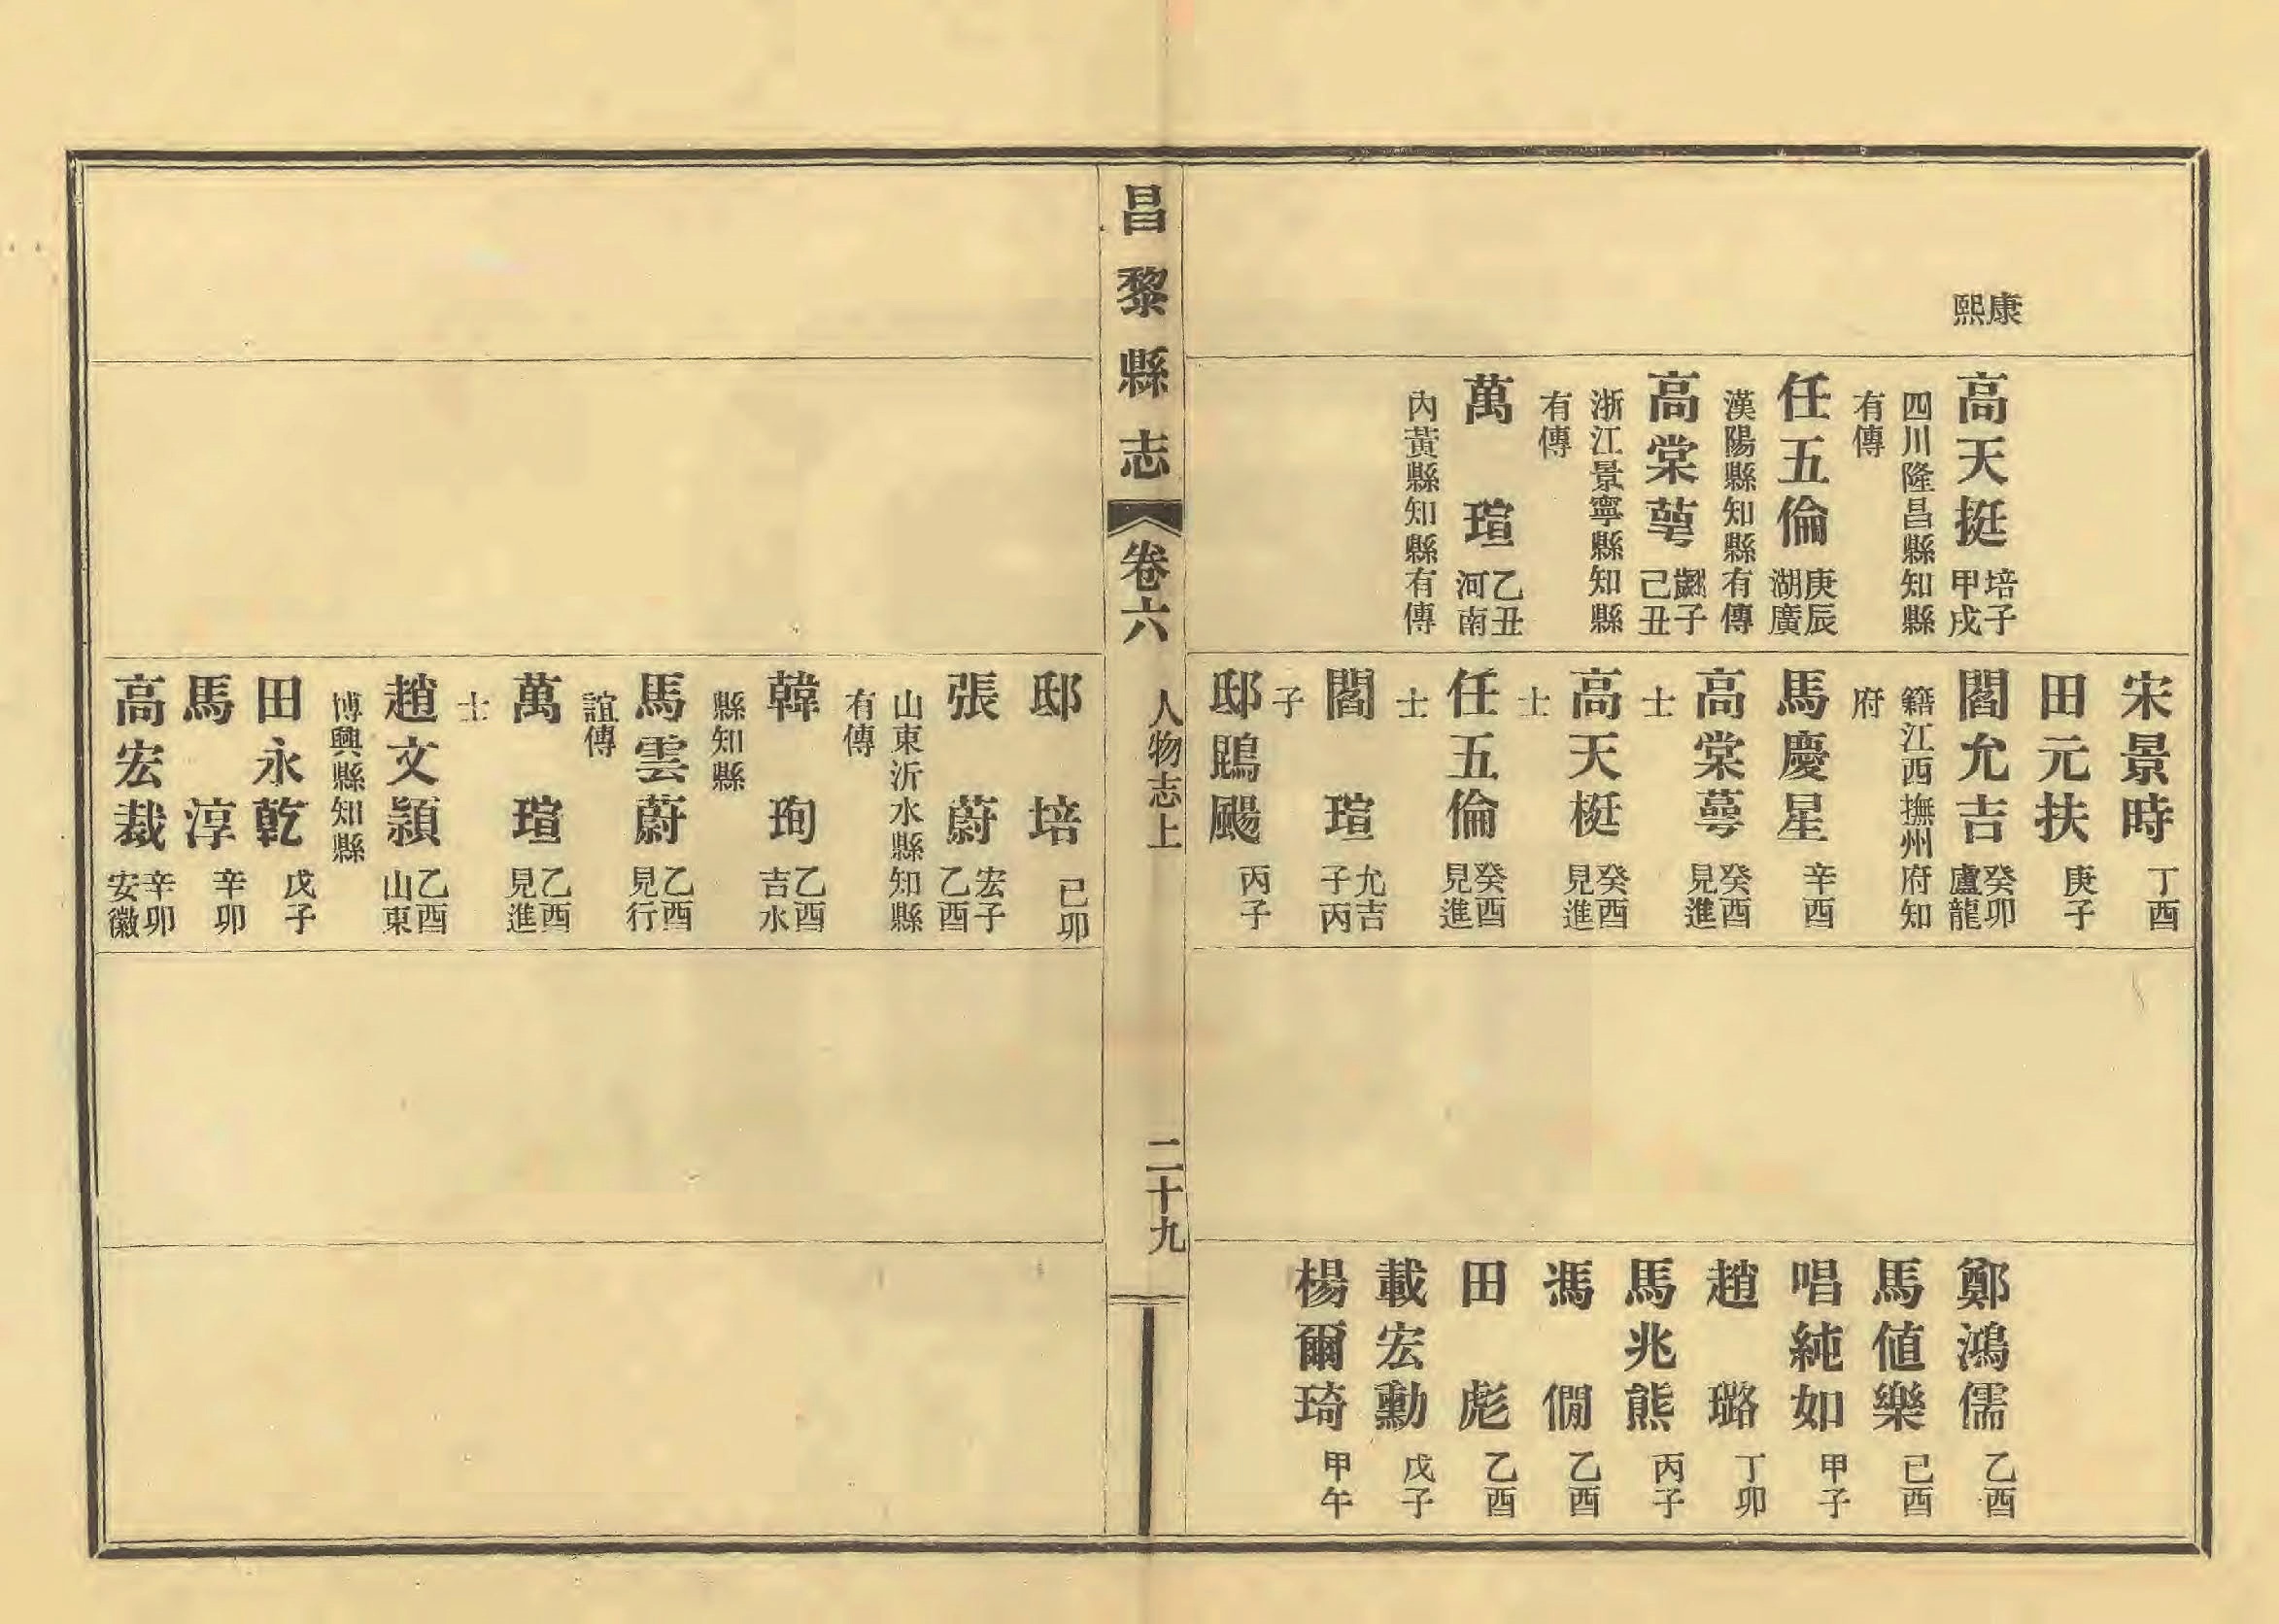 康熙
高天挺 培子甲戌
四川隆昌縣知縣
有傳
任五倫 庚辰湖廣
漢陽縣知縣有傳
高棠萼 子己丑
浙江景寧縣知縣
有傳
萬瑄 乙丑河南
內黃縣知縣有傳
宋景時 丁酉
田元扶 庚子
閻允吉 癸卯盧龍
籍江西撫州府知
府
馬慶星 辛酉
高棠萼 癸酉見進
士
高天梃 癸酉見進
士
任五倫 癸酉見進
士
閻瑄 允吉子丙
子
邸鵾颺 丙子
鄭鴻儒 乙酉
馬値樂 已酉
唱純如 甲子
趙璐 丁卯
馬兆熊 丙子
馮僩 乙酉
田彪 乙酉
載宏勳 戊子
楊爾琦 甲午
昌黎縣志 卷六 人物志上 二十九
邸培 已卯
張蔚 宏子乙酉
山東沂水縣知縣
有傳
韓珣 乙酉吉水
縣知縣
馬雲蔚 乙酉見行
誼傳
萬瑄 乙酉見進
士
趙文頴 乙酉山東
博興縣知縣
田永乾 戊子
馬淳 辛卯
高宏裁 辛卯安徽